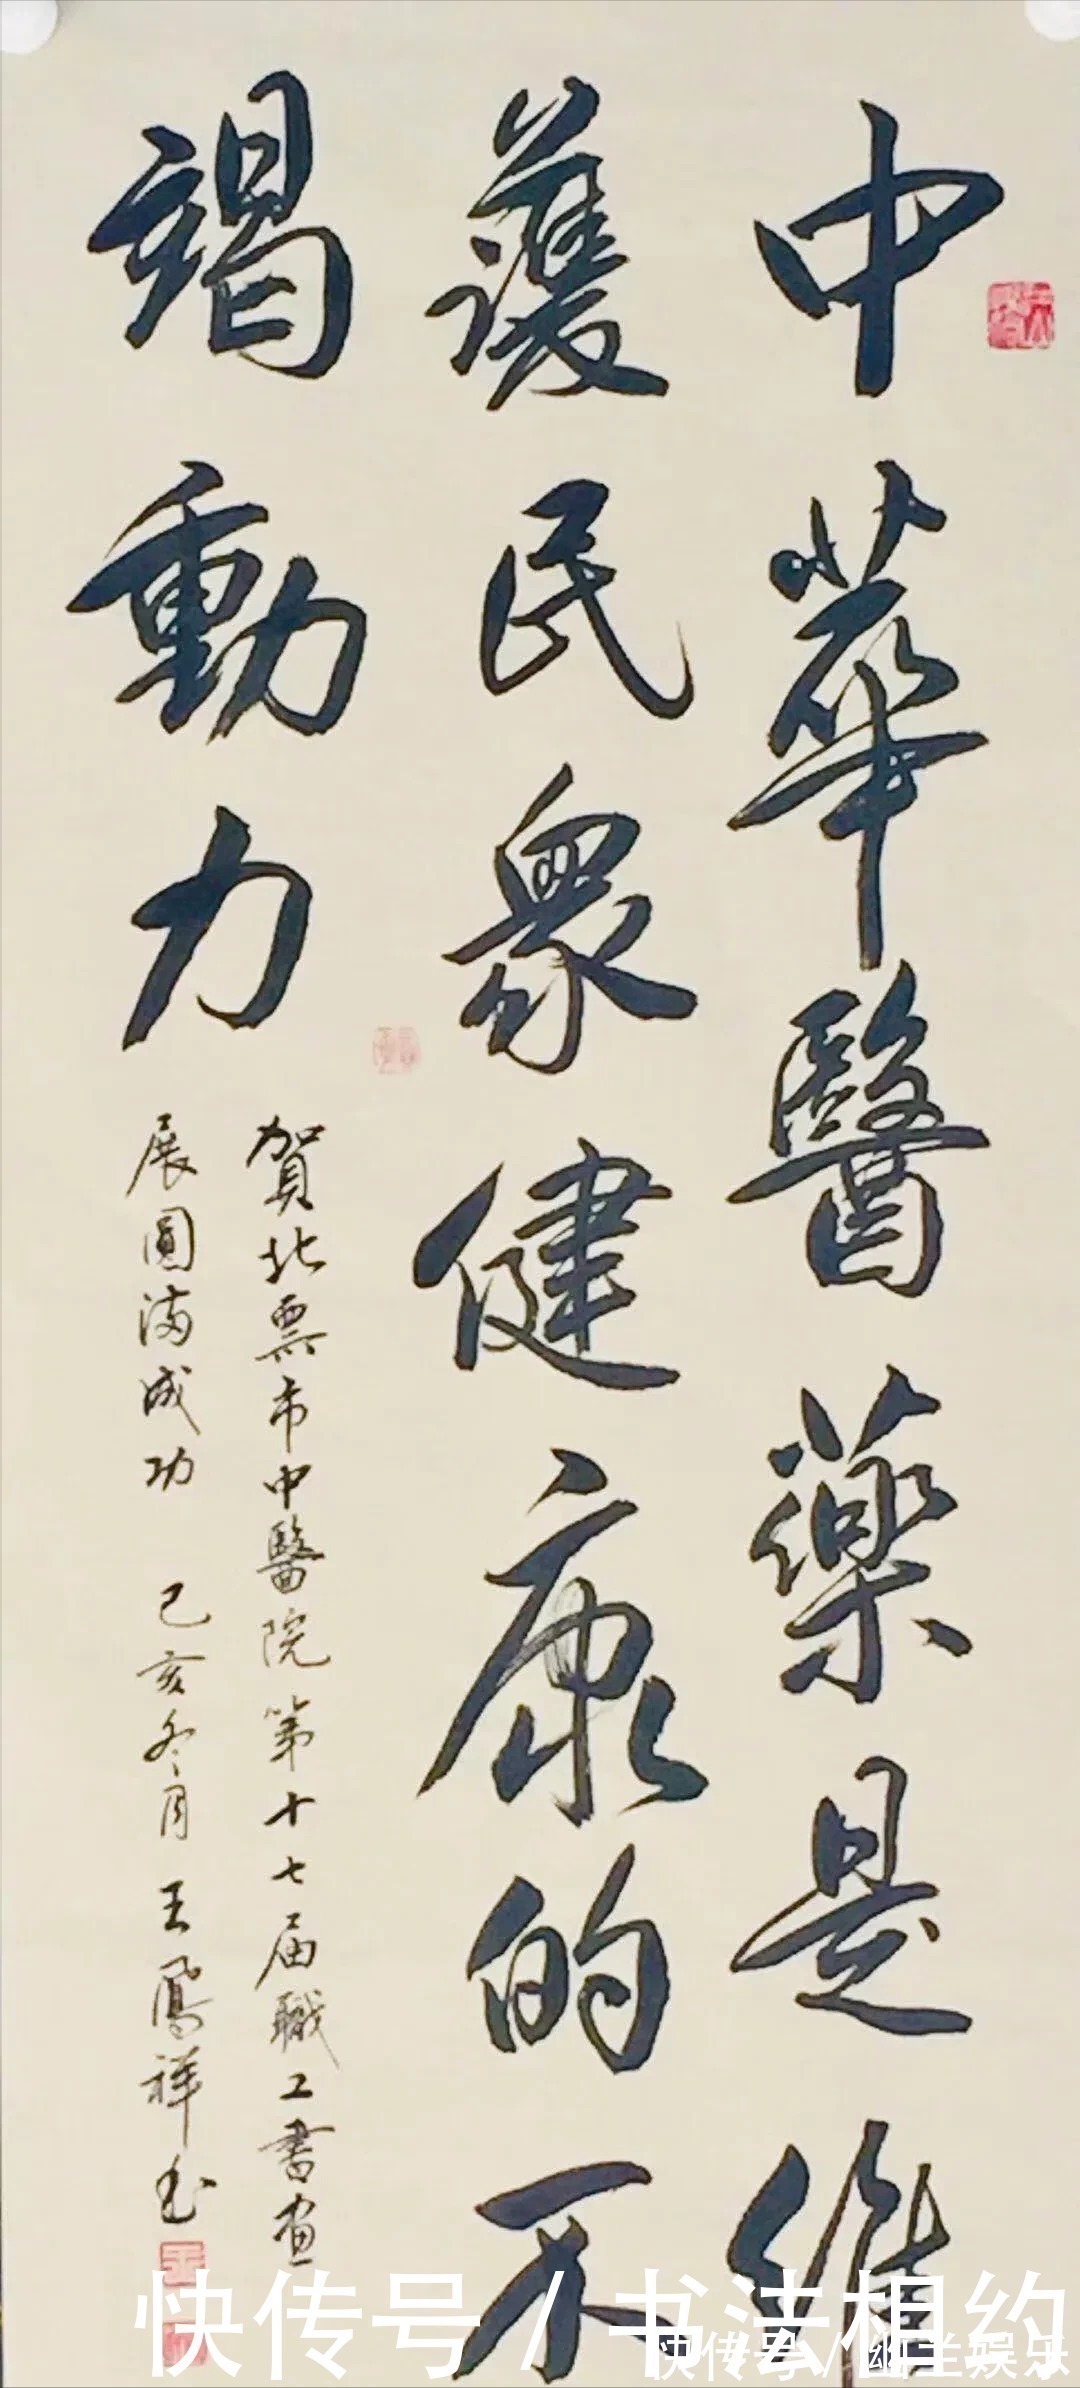 中華醫藥是維
護民衆健康的不
竭動力
賀北票市中醫院第十七届職工書画
展圓滿成功 己亥冬月 王鳳祥书
快传号/书法相约
快传号/幽兰娱乐